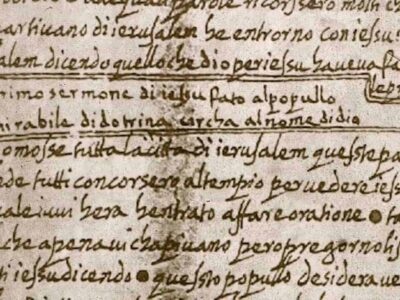 parole ricorsero molti ch
partivano di ierusalem he entrorno con iessu
alem dicendo quello che dio per iessu haveva fa
lepr
rimo sermone di iessu fato al popullo
mirabile di dotrina circha al nome di dio
omosse tutta la cita di ierusalem quesste pa
de tutti concorsero al tempio per vedere iess
ale iuui hera hentrato affare oratione ta
che apena ui chapiuano per o pregorno li s
ti iessu dicendo quessto popullo desidera ve